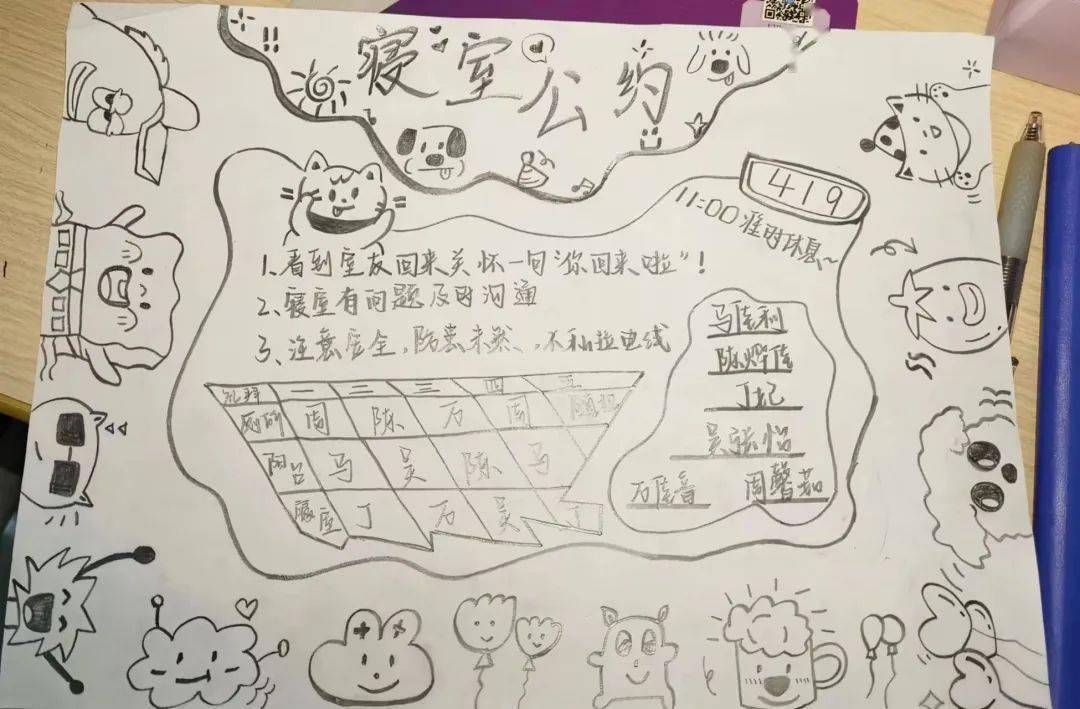 寝室公约
419
11:00准时休息~
1、看到室友回来关怀一句“你回来啦”！
2、寝室有问题及时沟通
3、注意安全，防患未然，不私拉电线
值日 一 二 三 四 五
厕所 周 陈 万 周 随机
阳台 马 吴 陈 马
寝室 丁 万 吴 丁
马佳利
陈烨佳
丁妃
吴张怡
万佳音 周馨茹